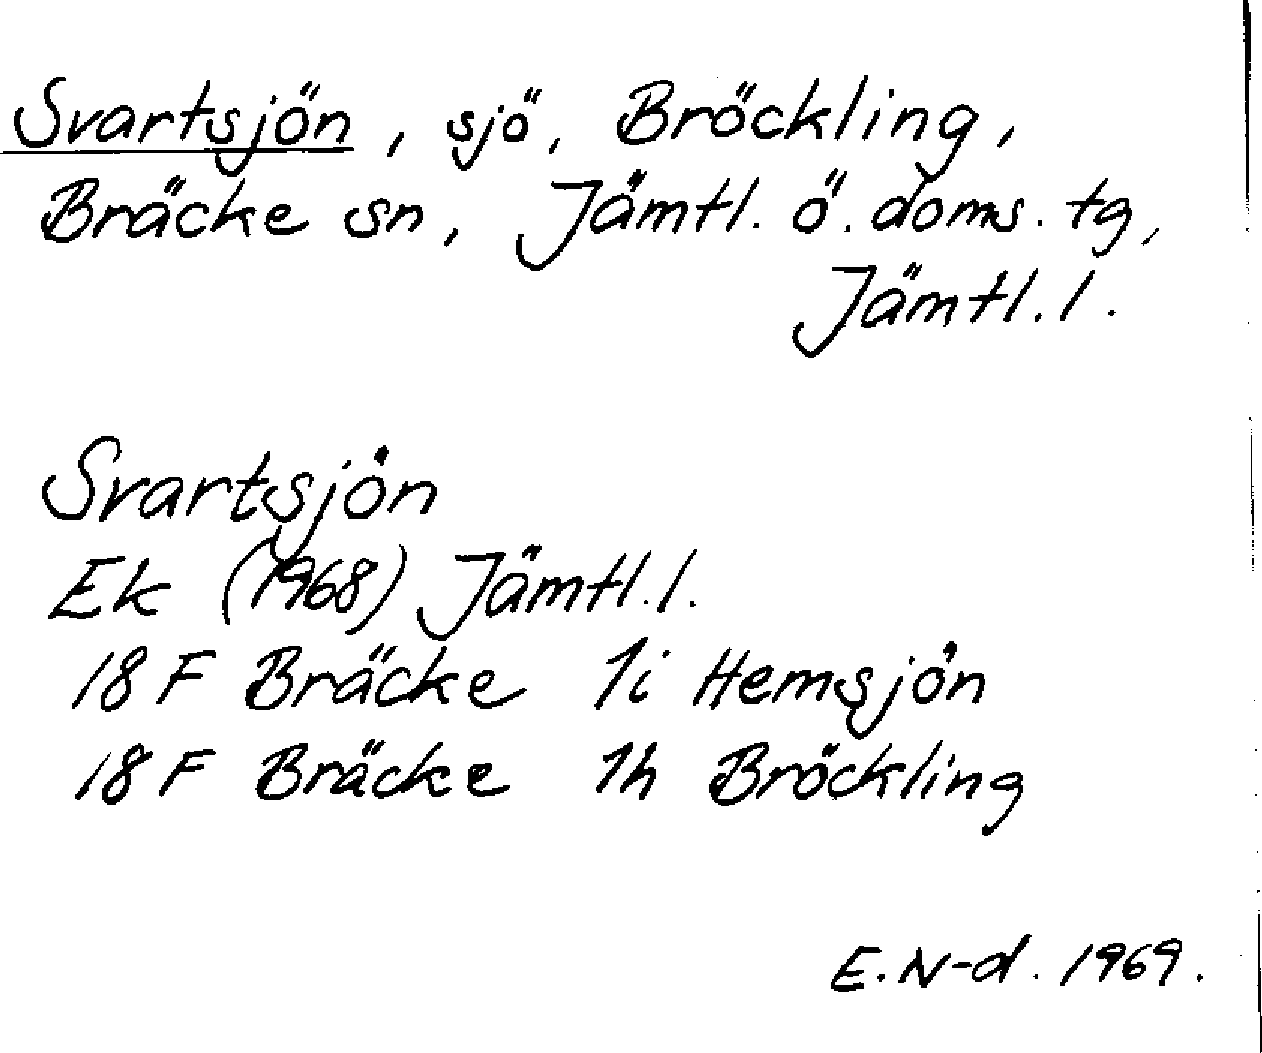 Svartsjön, sjö, Bröckling,
Bräcke sn, Jämtl. ö. doms. tg,
Jämtl. l.
Svartsjön
Ek (1968) Jämtl. l.
18 F Bräcke 1i Hemsjön
18 F Bräcke 1h Bröckling
E. N-d. 1969.